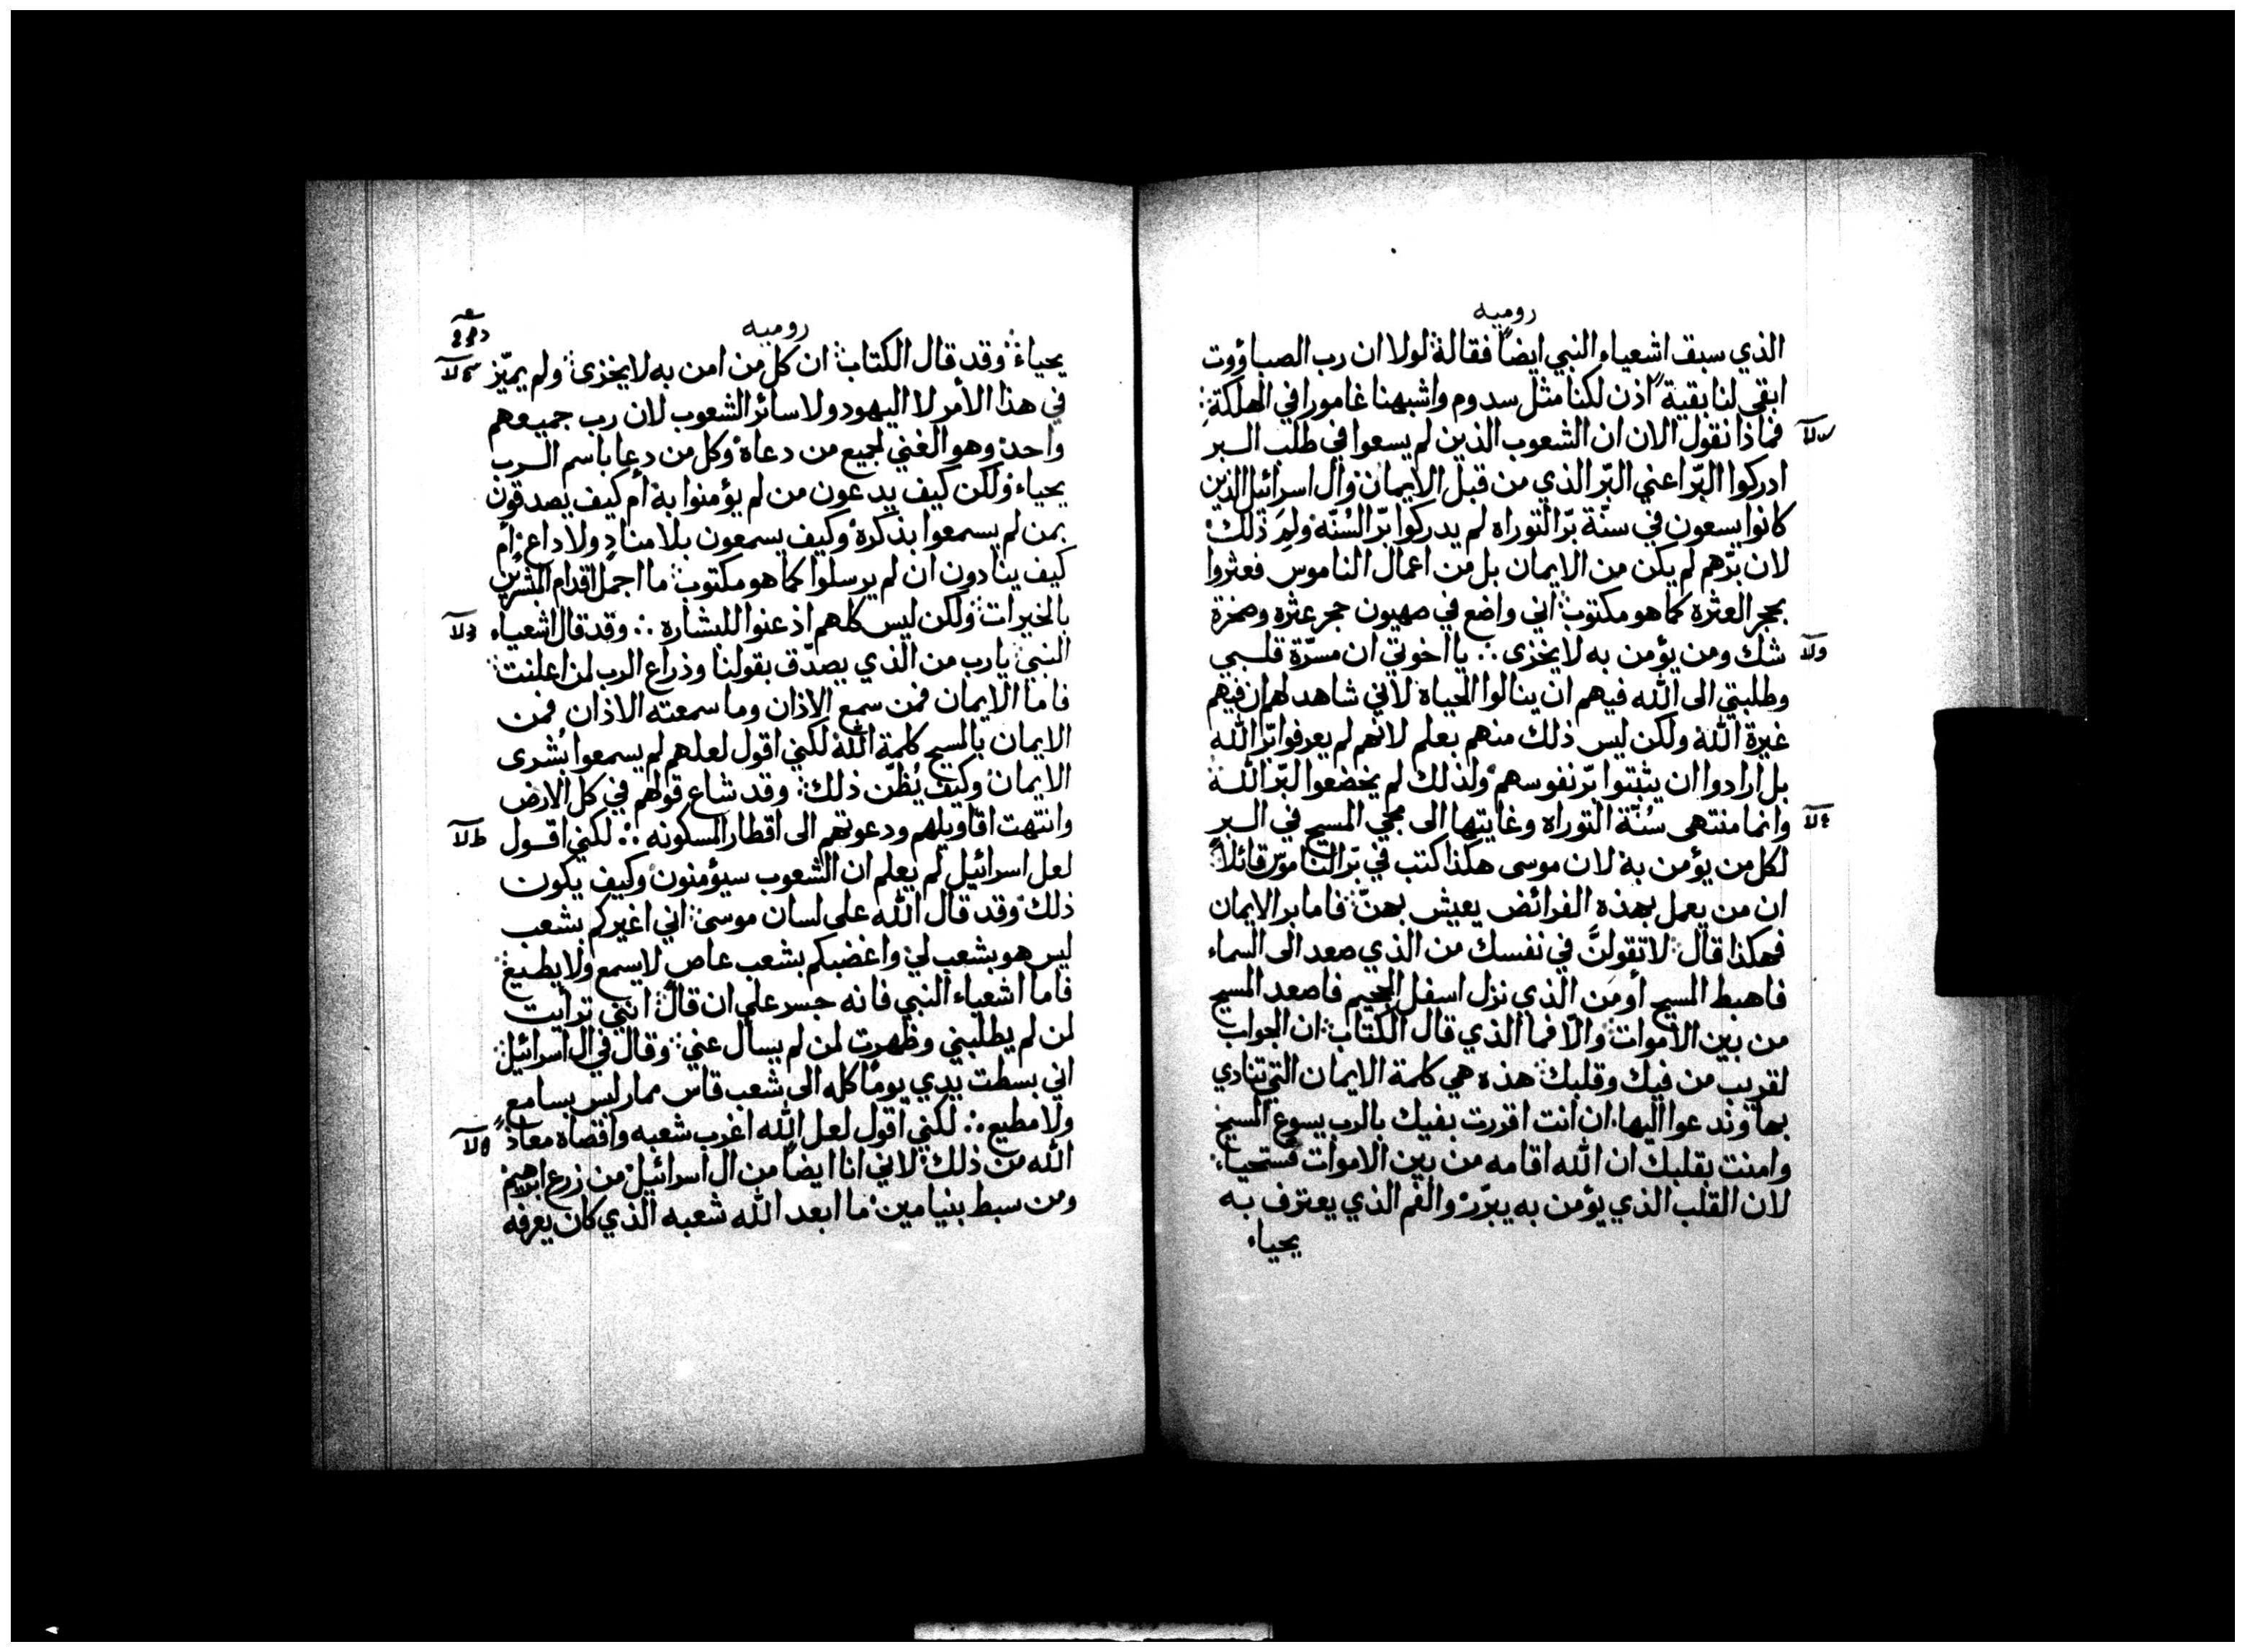 روميه
الذي سبق اشعياء النبي ايضاً فقاله لولا ان رب الصباؤوت
ابقى لنا بقية اذن لكنا مثل سدوم واشبهنا غامورا في الهلكة
فماذا نقول الان ان الشعوب الذين لم يسعوا في طلب البر
ادركوا البرّ اعني البرّ الذي من قبل الايمان وال اسرائيل الذين
كانوا يسعون في سنّة برّ التوراه لم يدركوا برّ السُنّه ولِمَ ذلك
لان برّهم لم يكن من الايمان بل من اعمال الناموس فعثروا
بحجر العثره كما هو مكتوب اني واضع في صهيون حجر عثره وصخرة
شك ومن يؤمن به لا يخزى ∴ يا اخوتي ان مسرّة قلبي
وطلبتي الى الله فيهم ان ينالوا الحياة لاني شاهد لهم ان فيهم
غيرة الله ولكن ليس ذلك منهم بعلم لانهم لم يعرفوا برّ الله
بل ارادوا ان يثبتوا برّ نفوسهم ولذلك لم يخضعوا البرّ الله
وانما منتهى سُنّة التوراه وغايتها الى مجي المسيح في البر
لكل من يؤمن به لان موسى هكذا كتب في برّ الناموس قائلاً
ان من يعمل بهذه الفرائض يعيش بهنّ فاما بر الايمان
فهكذا قال لا تقولنَّ في نفسك من الذي صعد الى السماء
فاهبط المسيح أو مَن الذي نزل اسفل الجحيم فاصعد المسيح
من بين الاموات والّا فما الذي قال الكتاب ان الجواب
لقريب من فيك وقلبك هذه هي كلمة الايمان التي ننادي
بها وندعوا اليها ان انت اقررت بفيك بالرب يسوع المسيح
وامنت بقلبك ان الله اقامه من بين الاموات فستحياء
لان القلب الذي يؤمن به يبرّر والفم الذي يعترف به
يحياء
روميه
يحياء وقد قال الكتاب ان كل من امن به لا يخزى ولم يميّز
في هذا الأمر لا اليهود ولا سائر الشعوب لان رب جميعهم
واحد وهو الغني لجميع من دعاه وكل من دعا باسم الرب
يحياء ولكن كيف يدعون من لم يؤمنوا به أم كيف يصدقون
بمن لم يسمعوا بذكره وكيف يسمعون بلا منادٍ ولا داعٍ أم
كيف ينادون ان لم يرسلوا كما هو مكتوب ما اجمل اقدام المبشرين
بالخيرات ولكن ليس كلهم اذعنوا للبشاره ∴ وقد قال اشعياء
النبي يا رب من الذي يصدّق بقولنا وذراع الرب لمن اعلنت
فاما الايمان فمن سمع الاذان وما سمعته الاذان فمن
الايمان بالمسيح كلمة الله لكني اقول لعلهم لم يسمعوا بُشرى
الايمان وكيف يُظنّ ذلك وقد شاع قولهم في كل الارض
وانتهت اقاويلهم ودعوتهم الى اقطار المسكونه ∴ لكني اقول
لعل اسرائيل لم يعلم ان الشعوب سيؤمنون وكيف يكون
ذلك وقد قال الله على لسان موسى اني اغيركم بشعب
ليس هو بشعب لي واغضبكم بشعب عاصٍ لا يسمع ولا يطيع
فاما اشعياء النبي فانه جسر على ان قال انني ترأيت
لمن لم يطلبني وظهرت لمن لم يسأل عني وقال في ال اسرائيل
اني بسطت يدي يوماً كله الى شعب قاس ممار ليس بسامع
ولا مطيع ∴ لكني اقول لعل الله اغرب شعبه واقصاه معاذ
الله من ذلك لاني انا ايضاً من ال اسرائيل من زرع ابراهيم
ومن سبط بنيامين ما ابعد الله شعبه الذي كان يعرفه